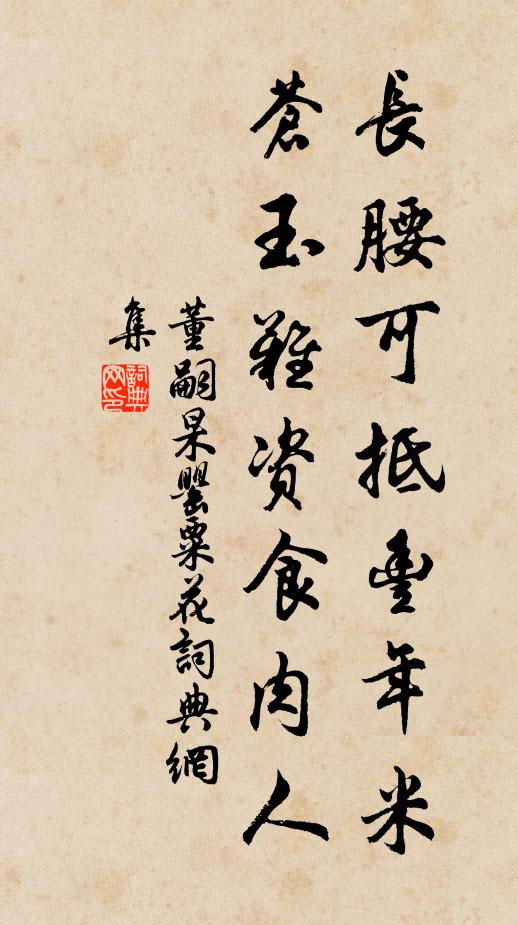 長腰可抵豐年米
蒼玉難資食肉人
董嗣杲罌粟花詞典網
集
詞典
网印